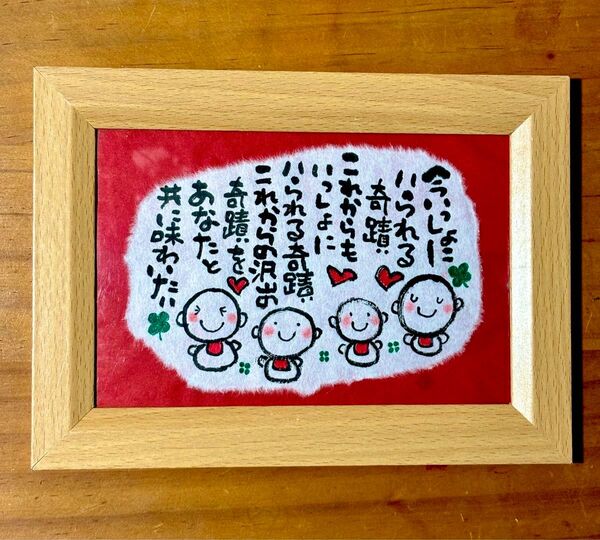 今いっしょに
いられる
奇蹟
これからも
いっしょに
いられる奇蹟
これからの沢山の
奇蹟を
あなたと
共に味わいたい